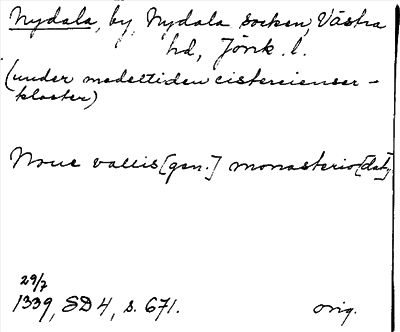 Nydala, by, Nydala socken, Västra
hd, Jönk. l.
(under medeltiden cistercienser-
kloster)
Noue vallis [gen.] monasterio [dat.]
29/7
1339, SD 4, s. 671.
orig.